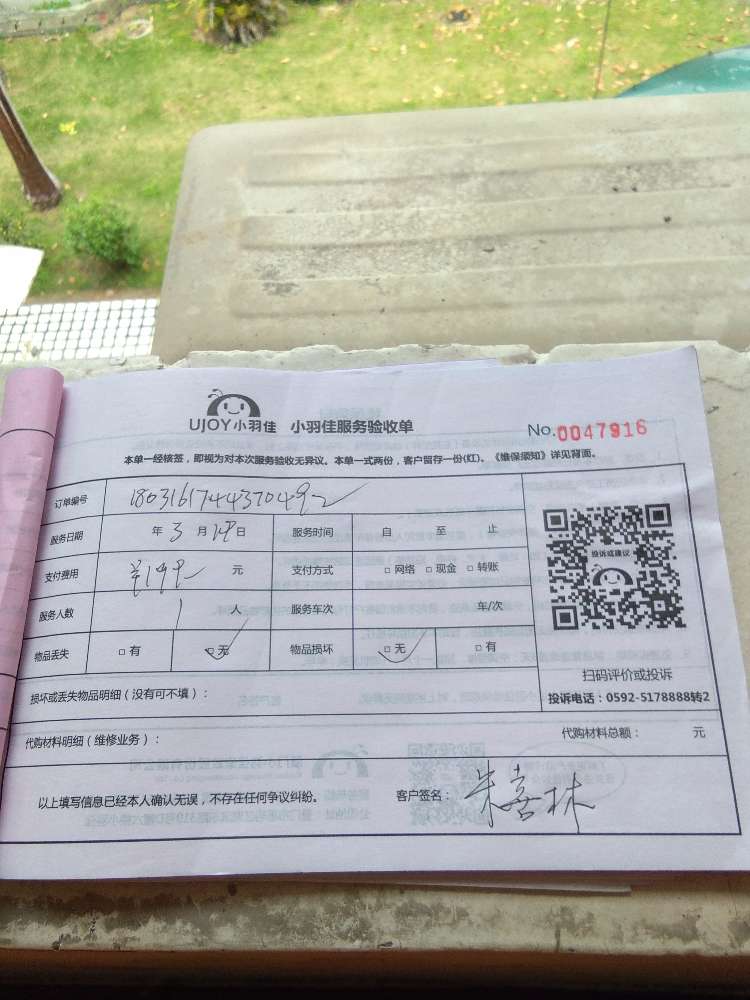 UJOY小羽佳 小羽佳服务验收单 No.0047916
本单一经核签，即视为对本次服务验收无异议。本单一式两份，客户留存一份(红)。《维保须知》详见背面。
订单编号
服务日期 年 3 月 日 服务时间 自 至 止
支付费用 元 支付方式 □ 网络 □ 现金 □ 转账
服务人数 1 人 服务车次 车/次
物品丢失 □ 有 □ 无 物品损坏 □ 无 □ 有
投诉或建议
扫码评价或投诉
投诉电话：0592-5178888转2
损坏或丢失物品明细（没有可不填）：
代购材料明细（维修业务）： 代购材料总额： 元
以上填写信息已经本人确认无误，不存在任何争议纠纷。 客户签名：